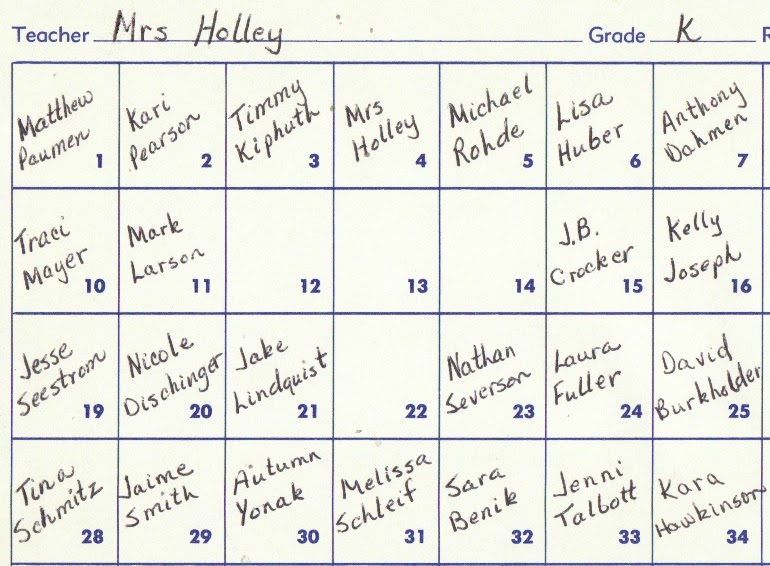 Teacher Mrs Holley Grade K R
Matthew
Paumen 1
Kari
Pearson 2
Timmy
Kiphuth 3
Mrs
Holley 4
Michael
Rohde 5
Lisa
Huber 6
Anthony
Dahmen 7
Traci
Mayer 10
Mark
Larson 11
12
13
14
J.B.
Crocker 15
Kelly
Joseph 16
Jesse
Seestrom 19
Nicole
Dischinger 20
Jake
Lindquist 21
22
Nathan
Severson 23
Laura
Fuller 24
David
Burkholder 25
Tina
Schmitz 28
Jaime
Smith 29
Autumn
Yonak 30
Melissa
Schleif 31
Sara
Benik 32
Jenni
Talbott 33
Kara
Hawkinson 34